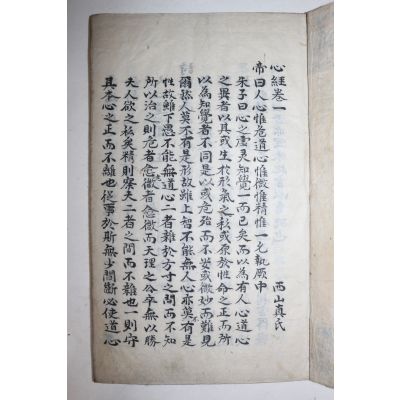 心經卷一 西山真氏
帝曰人心惟危道心惟微惟精惟一允執厥中
朱子曰心之虛灵知覺一而已矣而以為有人心道心
之異者以其或生於形氣之私或原於性命之正而所
以為知覺者不同是以或危殆而不安或微妙而難見
爾然人莫不有是形故雖上智不能無人心亦莫不有是
性故雖下愚不能無道心二者雜於方寸之間而不知
所以治之則危者愈危微者愈微而天理之公卒無以勝
夫人欲之私矣精則察夫二者之間而不雜也一則守
其本心之正而不離也從事於斯無少間斷必使道心